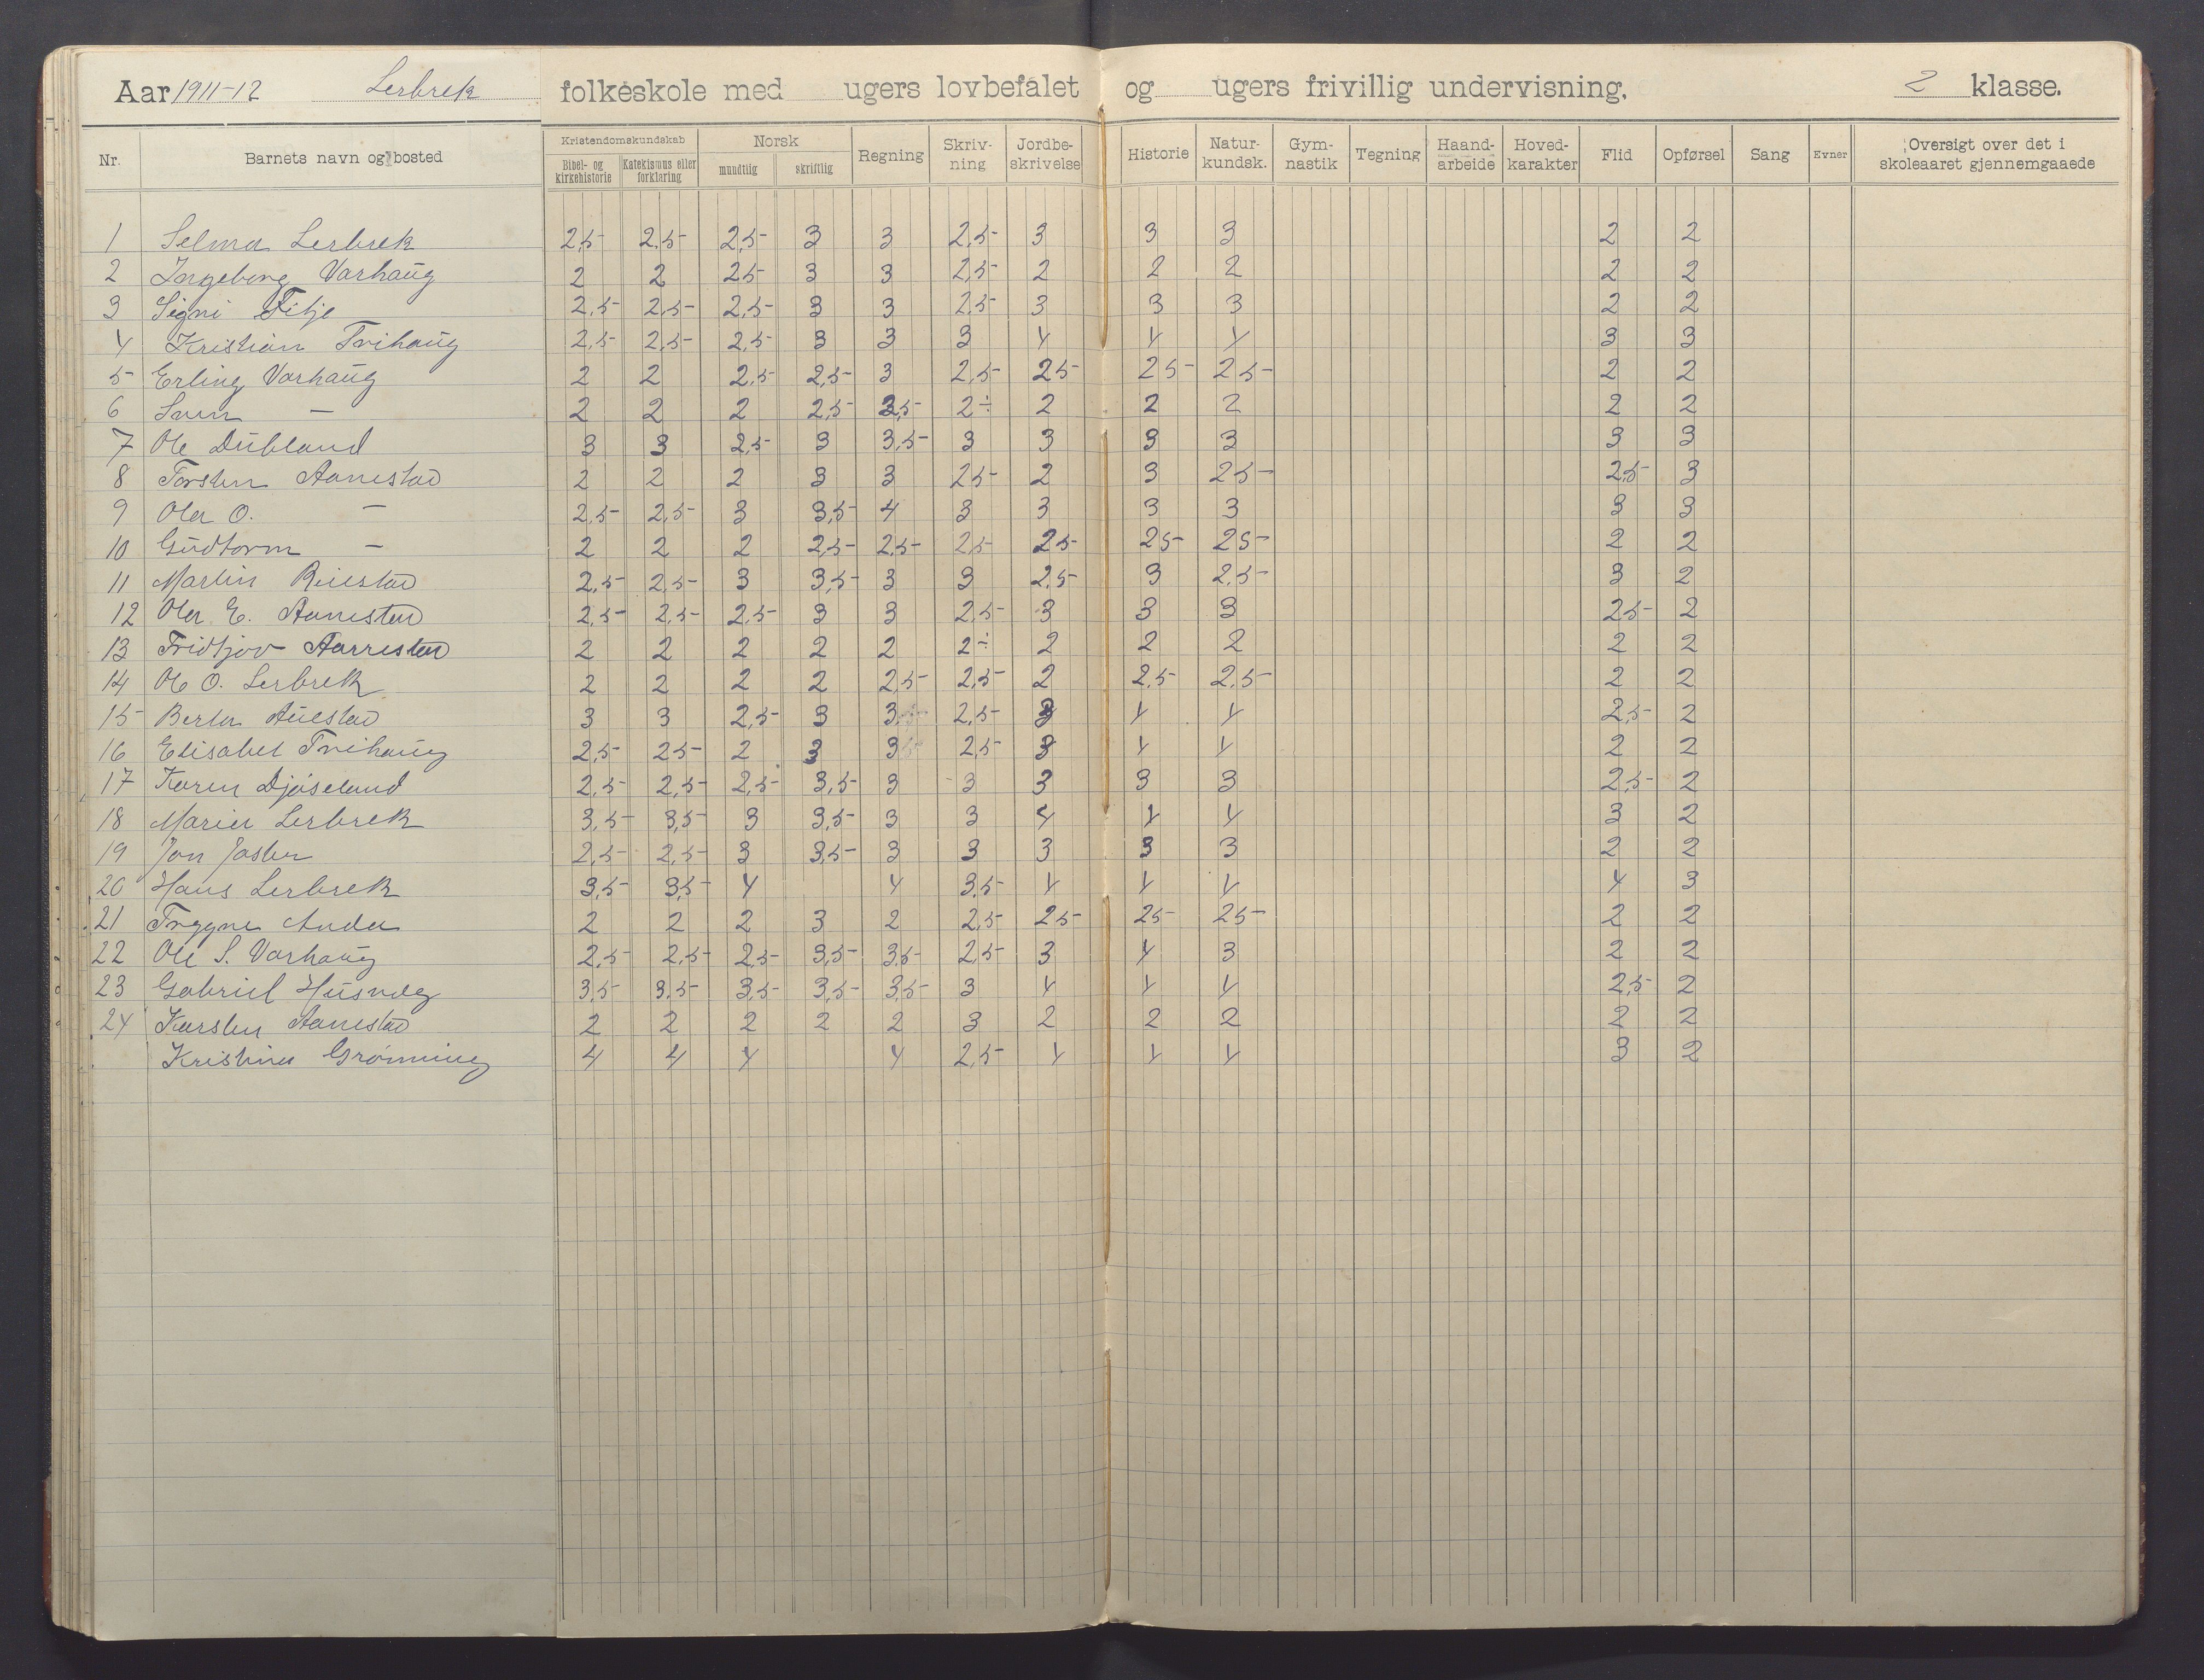 Aar 1911-12 Lerbrek folkeskole med ugers lovbefalet og ugers frivillig undervisning. 2 klasse.
Nr. Barnets navn og bosted Kristendomskundskab Bibel- og kirkehistorie Katekismus eller forklaring Norsk mundtlig skriftlig Regning Skriv-ning Jordbe-skrivelse Historie Natur-kundsk. Gym-nastik Tegning Haand-arbeide Hoved-karakter Flid Opførsel Sang Evner Oversigt over det i skoleaaret gjennemgaaede
1 Selma Lerbrek 2,5 2,5 2,5 3 3 2,5 3 3 3 2 2
2 Ingeborg Varhaug 2 2 25 3 3 2,5 2 2 2 2 2
3 Signi Fitje 2,5 2,5 2,5 3 3 2,5 3 3 3 2 2
4 Kristian Trihaug 2,5 2,5 2,5 3 3 3 4 4 4 3 3
5 Erling Varhaug 2 2 2,5 2,5 3 2,5 25 25 25 2 2
6 Sven — 2 2 2 2,5 3,5 2÷ 2 2 2 2 2
7 Ole Dubland 3 3 2,5 3 3,5 3 3 3 3 3 3
8 Torsten Aanestad 2 2 2 3 3 25 2 3 25 2,5 3
9 Ola O. — 2,5 2,5 3 3,5 4 3 3 3 3 3 3
10 Gudtorm — 2 2 2 2,5 2,5 2,5 25 25 25 2 2
11 Martin Reiestad 2,5 2,5 3 3,5 3 3 2,5 3 2,5 3 2
12 Ola E. Aanestad 2,5 2,5 2,5 3 3 2,5 3 3 3 25 2
13 Fridtjov Aarrestad 2 2 2 2 2 2÷ 2 2 2 2 2
14 Ole O. Lerbrek 2 2 2 2 2,5 2,5 2 2,5 2,5 2 2
15 Berta Auestad 3 3 2,5 3 3 2,5 3 4 4 2,5 2
16 Elisabet Trihaug 2,5 25 2 3 3 2,5 3 4 4 2 2
17 Karen Djøseland 2,5 2,5 2,5 3,5 3 3 3 3 3 2,5 2
18 Marie Lerbrek 3,5 3,5 3 3,5 3 3 4 4 4 3 2
19 Jon Jasber 2,5 2,5 3 3,5 3 3 3 3 3 2 2
20 Hans Lerbrek 3,5 3,5 4 4 3,5 4 4 4 4 3
21 Trygve Anda 2 2 2 3 2 2,5 25 25 25 2 2
22 Ole S. Varhaug 2,5 2,5 2,5 3,5 3,5 2,5 3 4 3 2 2
23 Gabriel Husveg 3,5 3,5 3,5 3,5 3,5 3 4 4 4 2,5 2
24 Karsten Aanestad 2 2 2 2 2 3 2 2 2 2 2
Kristina Grønning 4 4 4 4 2,5 4 4 4 3 2